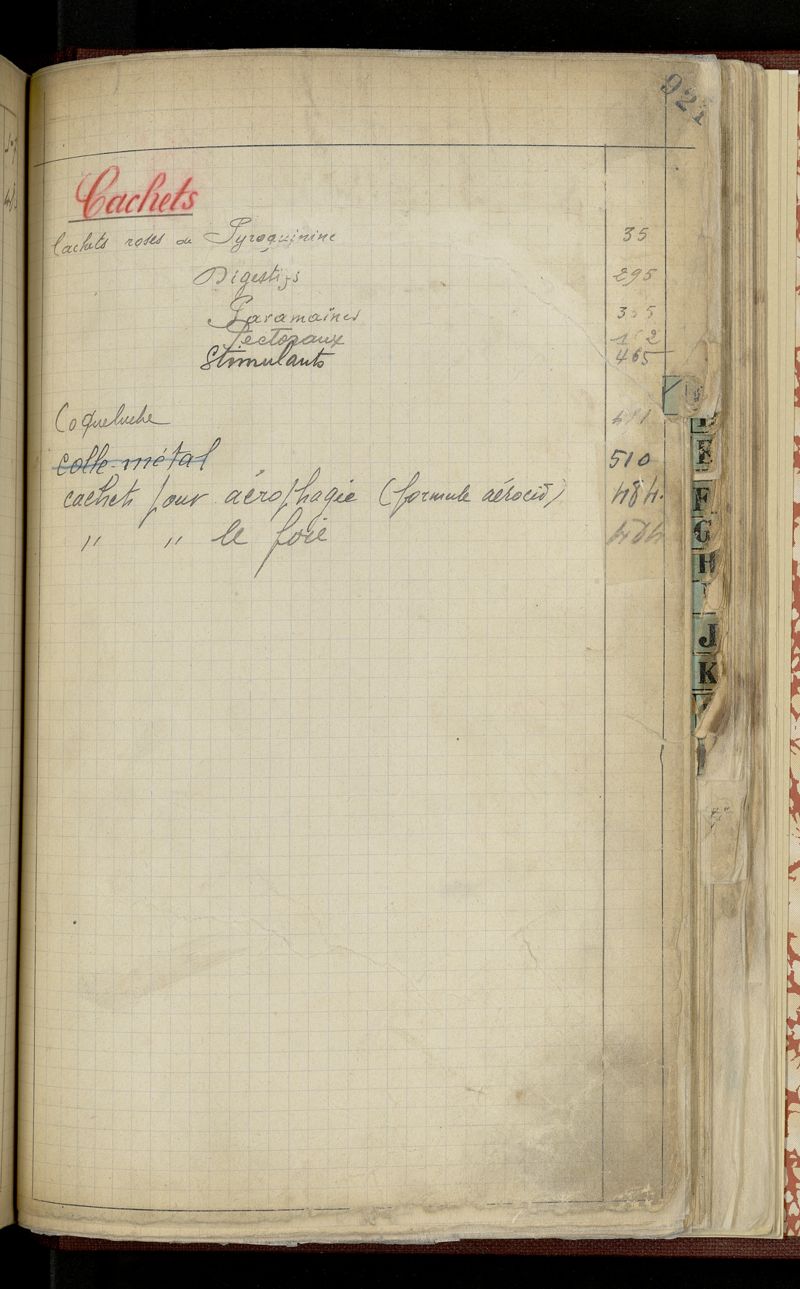 921
Cachets
Cachets roses de Pyroquinine 35
Digestifs 295
Paramaïnes 3
Pectoraux
Stimulants 465
Coqueluche
colle-métal 510
cachets pour aérophagie (formule aérocid) 484.
" " le foie 484
E
F
G
H
J
K